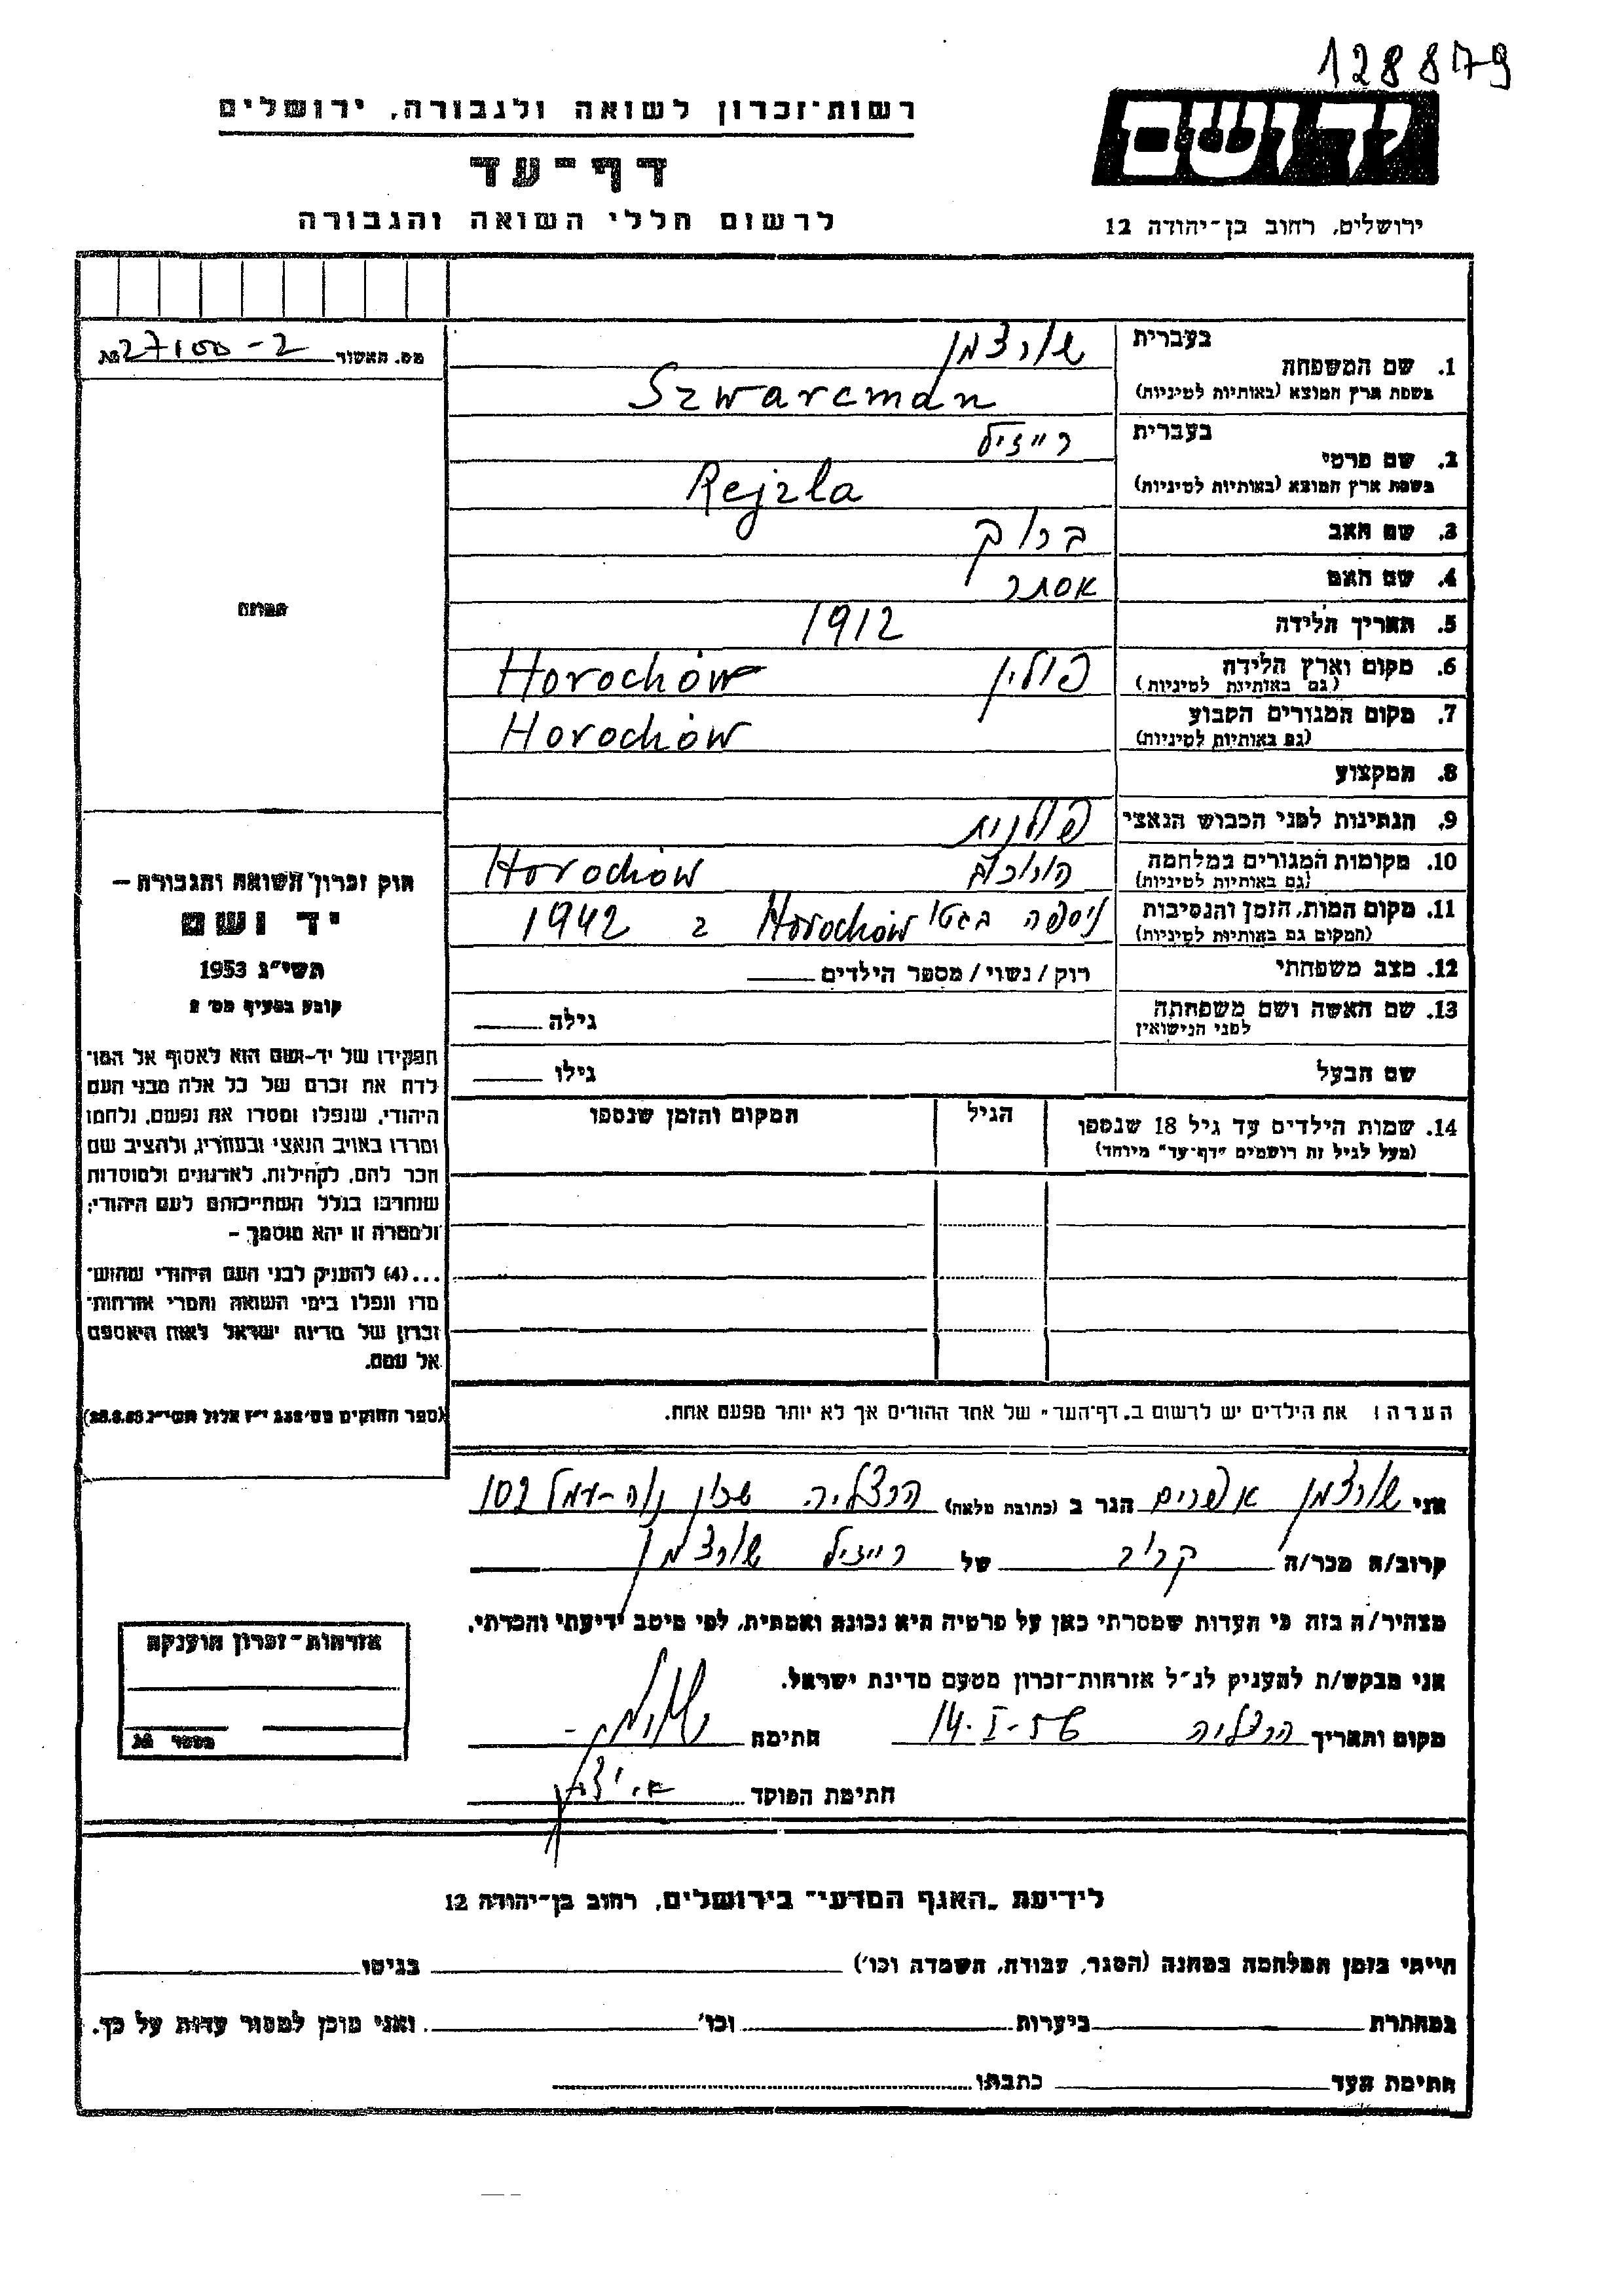 128879
רשות-זכרון לשואה ולגבורה, ירושלים
יד ושם
דף-עד
לרשום חללי השואה והגבורה
ירושלים, רחוב בן-יהודה 12
מס. האשור 27100-2 №
בעברית שורצמן
1. שם המשפחה
בשפת ארץ המוצא (באותיות לטיניות) Szwarcman
בעברית רייזיל
2. שם פרטי
בשפת ארץ המוצא (באותיות לטיניות) Rejzla
3. שם האב ברוך
4. שם האם אסתר
5. תאריך הלידה 1912
6. מקום וארץ הלידה פולין Horochów
(גם באותיות לטיניות)
7. מקום המגורים הקבוע Horochów
(גם באותיות לטיניות)
8. המקצוע
9. הנתינות לפני הכבוש הנאצי פולנית
10. מקומות המגורים במלחמה Horochów
(גם באותיות לטיניות)
11. מקום המות, הזמן והנסיבות ניספה בגטו Horochów ב 1942
(המקום גם באותיות לטיניות)
12. מצב משפחתי רוק/נשוי/מספר הילדים
13. שם האשה ושם משפחתה גילה
לפני הנישואין
שם הבעל גילו
14. שמות הילדים עד גיל 18 שנספו הגיל המקום והזמן שנספו
(מעל לגיל זה רושמים "דף-עד" מיוחד)
התמונה
חוק זכרון השואה והגבורה –
יד ושם
תשי"ג 1953
קובע בסעיף מס' 2
תפקידו של יד-ושם הוא לאסוף אל המו־
לדת את זכרם של כל אלה מבני העם
היהודי, שנפלו ומסרו את נפשם, נלחמו
ומרדו באויב הנאצי ובעוזריו, ולהציב שם
וזכר להם, לקהילות, לארגונים ולמוסדות
שנחרבו בגלל השתייכותם לעם היהודי;
ולמטרה זו יהא מוסמך –
...(4) להעניק לבני העם היהודי שהוש־
מדו ונפלו בימי השואה והמרי אזרחות־
זכרון של מדינת ישראל לאות היאספם
אל עמם.
(ספר החוקים מס' 132 י"ז אלול תשי"ג 28.8.53)
הערה: את הילדים יש לרשום ב"דף-העד" של אחד ההורים אך לא יותר מפעם אחת.
אני שורצמן אפרים הגר ב (כתובת מלאה) הרצליה שכון נוה-עמל 102
קרוב/ה מכר/ה קרוב של רייזיל שורצמן
מצהיר/ה בזה כי העדות שמסרתי כאן על פרטיה היא נכונה ואמתית, לפי מיטב ידיעתי והכרתי.
אני מבקש/ת להעניק לנ"ל אזרחות-זכרון מטעם מדינת ישראל.
מקום ותאריך הרצליה 14-I-56 חתימה
חתימת הפוקד
אזרחות-זכרון הוענקה
מספר №
לידיעת "האגף המדעי" בירושלים, רחוב בן-יהודה 12
הייתי בזמן המלחמה במחנה (הסגר, עבודה, השמדה וכו') בגיטו
במחתרת ביערות וכו' ואני מוכן למסור עדות על כך.
חתימת העד כתבתו